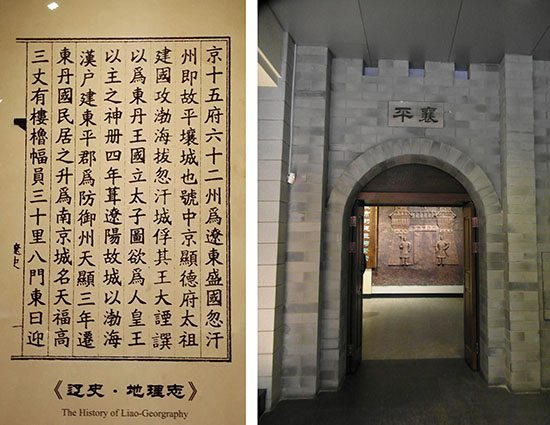 京十五府六十二州爲遼東盛國忽汗
州即故平壤城也號中京顯德府太祖
建國攻渤海拔忽汗城俘其王大諲譔
以爲東丹王國立太子圖欲爲人皇王
以主之神册四年葺遼陽故城以渤海
漢户建東平郡爲防御州天顯三年遷
東丹國民居之升爲南京城名天福高
三丈有樓櫓幅員三十里八門東曰迎
遼史
《辽史·地理志》
The History of Liao-Georgraphy
襄平